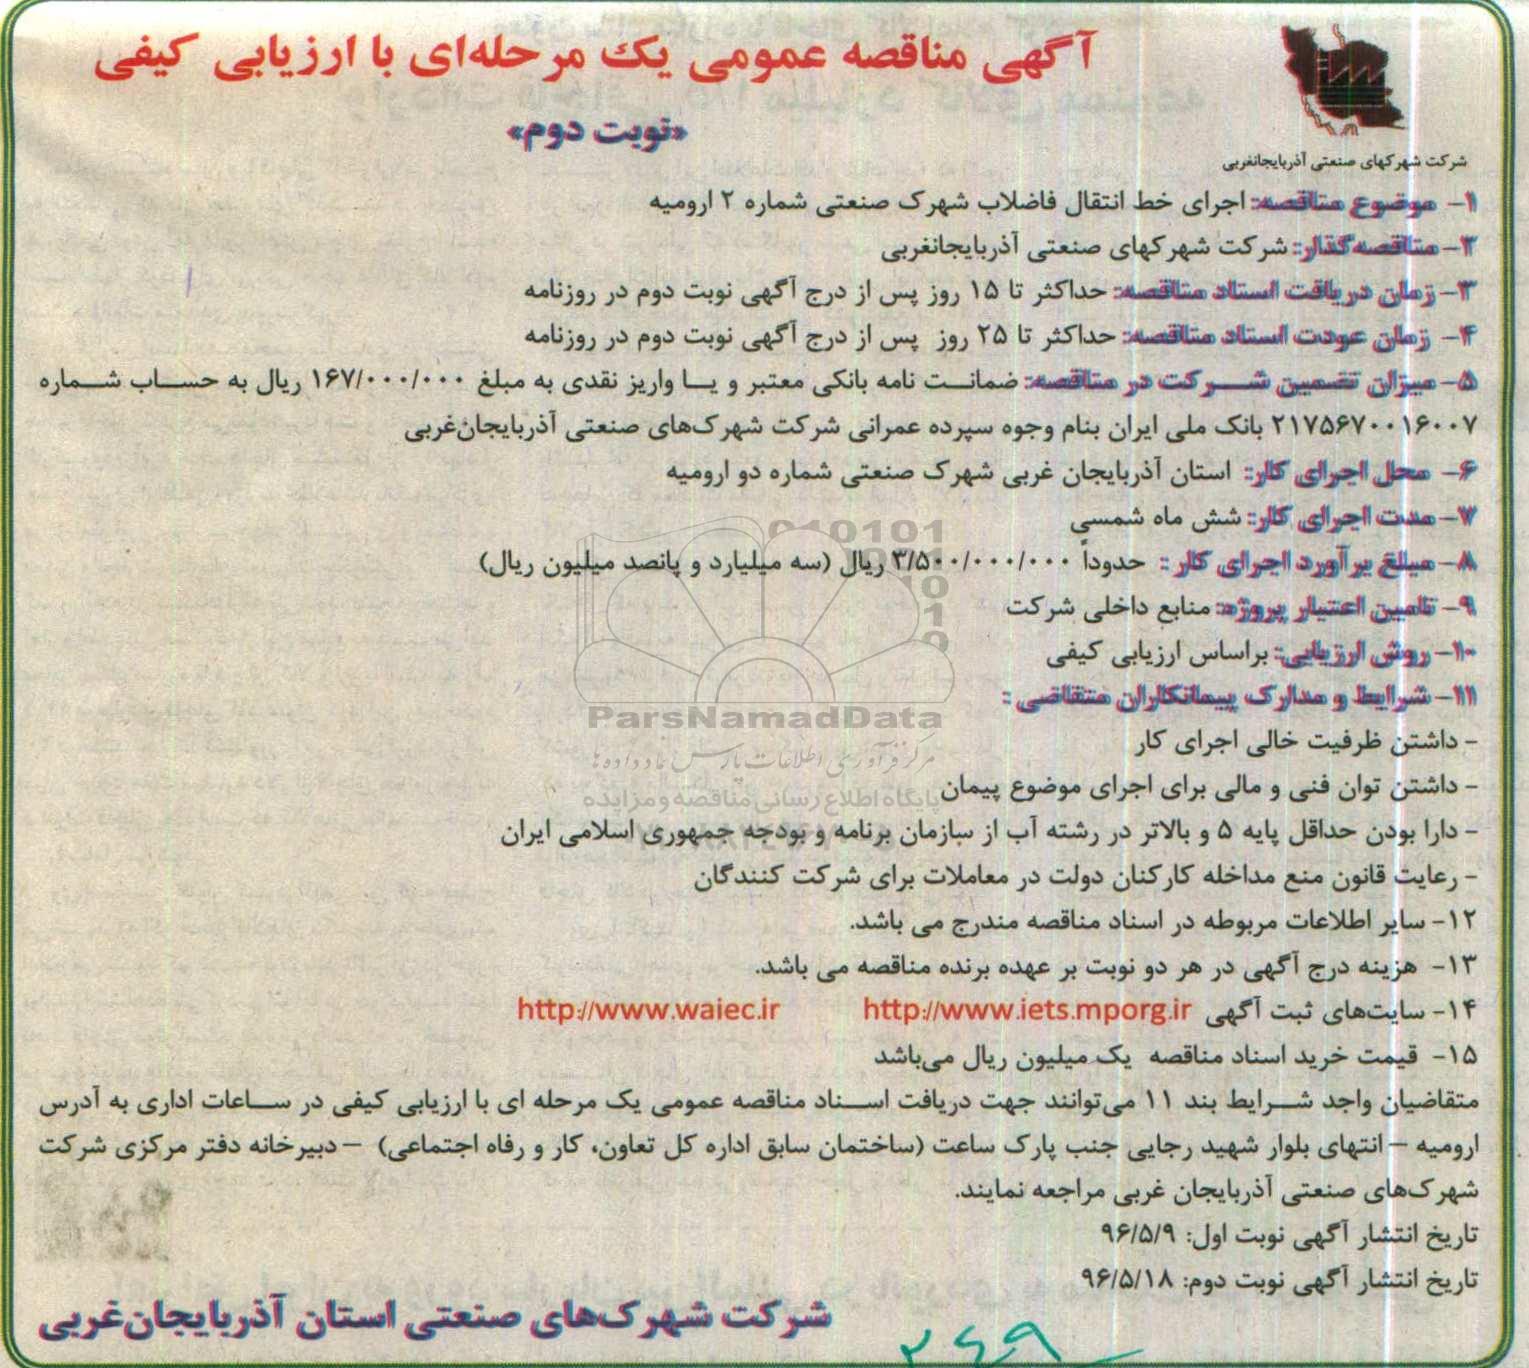 آگهی مناقصه عمومی یک مرحله‌ای با ارزیابی کیفی
«نوبت دوم»
شرکت شهرکهای صنعتی آذربایجانغربی
۱- موضوع مناقصه: اجرای خط انتقال فاضلاب شهرک صنعتی شماره ۲ ارومیه
۲- مناقصه‌گذار: شرکت شهرکهای صنعتی آذربایجانغربی
۳- زمان دریافت اسناد مناقصه: حداکثر تا ۱۵ روز پس از درج آگهی نوبت دوم در روزنامه
۴- زمان عودت اسناد مناقصه: حداکثر تا ۲۵ روز پس از درج آگهی نوبت دوم در روزنامه
۵- میزان تضمین شرکت در مناقصه: ضمانت نامه بانکی معتبر و یا واریز نقدی به مبلغ ۱۶۷/۰۰۰/۰۰۰ ریال به حساب شماره
۲۱۷۵۶۷۰۰۱۶۰۰۷ بانک ملی ایران بنام وجوه سپرده عمرانی شرکت شهرک‌های صنعتی آذربایجان‌غربی
۶- محل اجرای کار: استان آذربایجان غربی شهرک صنعتی شماره دو ارومیه
۷- مدت اجرای کار: شش ماه شمسی
۸- مبلغ برآورد اجرای کار : حدوداً ۳/۵۰۰/۰۰۰/۰۰۰ ریال (سه میلیارد و پانصد میلیون ریال)
۹- تامین اعتبار پروژه: منابع داخلی شرکت
۱۰- روش ارزیابی: براساس ارزیابی کیفی
۱۱- شرایط و مدارک پیمانکاران متقاضی :
ParsNamadData
- داشتن ظرفیت خالی اجرای کار
مرکز فرآوری اطلاعات پارس نماد داده‌ها
- داشتن توان فنی و مالی برای اجرای موضوع پیمان
پایگاه اطلاع رسانی مناقصه و مزایده
- دارا بودن حداقل پایه ۵ و بالاتر در رشته آب از سازمان برنامه و بودجه جمهوری اسلامی ایران
- رعایت قانون منع مداخله کارکنان دولت در معاملات برای شرکت کنندگان
۱۲- سایر اطلاعات مربوطه در اسناد مناقصه مندرج می باشد.
۱۳- هزینه درج آگهی در هر دو نوبت بر عهده برنده مناقصه می باشد.
۱۴- سایت‌های ثبت آگهی http://www.iets.mporg.ir http://www.waiec.ir
۱۵- قیمت خرید اسناد مناقصه یک میلیون ریال می‌باشد
متقاضیان واجد شرایط بند ۱۱ می‌توانند جهت دریافت اسناد مناقصه عمومی یک مرحله ای با ارزیابی کیفی در ساعات اداری به آدرس
ارومیه – انتهای بلوار شهید رجایی جنب پارک ساعت (ساختمان سابق اداره کل تعاون، کار و رفاه اجتماعی) – دبیرخانه دفتر مرکزی شرکت
شهرک‌های صنعتی آذربایجان غربی مراجعه نمایند.
تاریخ انتشار آگهی نوبت اول: ۹۶/۵/۹
تاریخ انتشار آگهی نوبت دوم: ۹۶/۵/۱۸
شرکت شهرک‌های صنعتی استان آذربایجان‌غربی